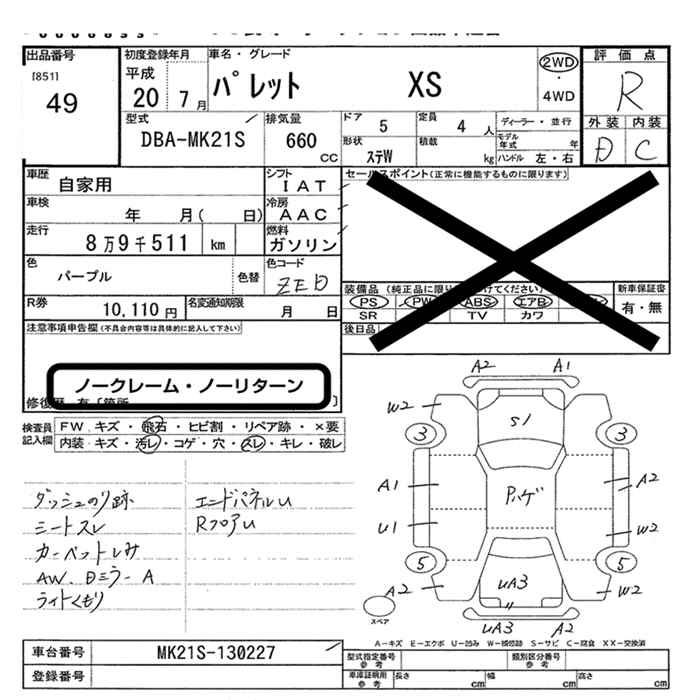 出品番号
[851]
49
初度登録年月
平成
20 7月
車名・グレード
パレット XS
2WD
・
4WD
評価点
R
外装 内装
D C
型式
DBA-MK21S
排気量
660
CC
ドア
5
定員
4人
ディーラー・並行
形状
ステW
積載
kg
モデル年式 年
ハンドル 左・右
車歴
自家用
シフト
IAT
セールスポイント(正常に機能するものに限ります)
車検
年 月( 日)
冷房
AAC
走行
8万9千511 km
燃料
ガソリン
色
パープル
色替
色コード
ZED
装備品 (純正品に限り
てください)
新車保証書
PS PW ABS エアB
有・無
SR TV カワ
R券
10,110円
名変通知期限
月 日
後日品
注意事項申告欄(不具合内容等は具体的に記入して下さい)
ノークレーム・ノーリターン
修復歴 有〔箇所 〕
検査員
記入欄
FW キズ・飛石・ヒビ割・リペア跡・×要
内装・キズ・汚レ・コゲ・穴・スレ・キレ・破レ
ダッシュのり跡
シートスレ
カーペットしみ
AW、Dミラー A
ライトくもり
エンドパネルU
RフロアU
A2 A1
W2
S1
3 3
A1
Pハゲ
A2
U1
W2
5 5
A2
UA3
W2
UA3 A2
スペア
A-キズ E-エクボ U-凹み W-補修跡 S-サビ C-腐食 XX-交換済
車台番号
MK21S-130227
登録番号
型式指定番号
参考
類別区分番号
参考
車庫証明用
参考
長さ cm
幅 cm
高さ cm